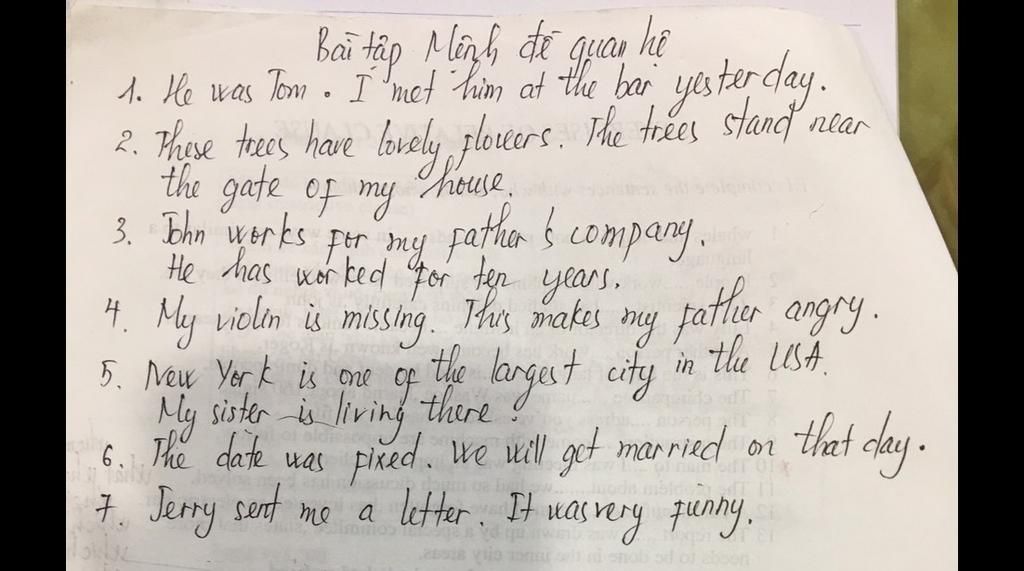 Bài tập Mệnh đề quan hệ
1. He was Tom. I met him at the bar yesterday.
2. These trees have lovely flowers. The trees stand near
the gate of my house.
3. John works for my father's company.
He has worked for ten years.
4. My violin is missing. This makes my father angry.
5. New York is one of the largest city in the USA.
My sister is living there.
6. The date was fixed. We will get married on that day.
7. Jerry sent me a letter. It was very funny.